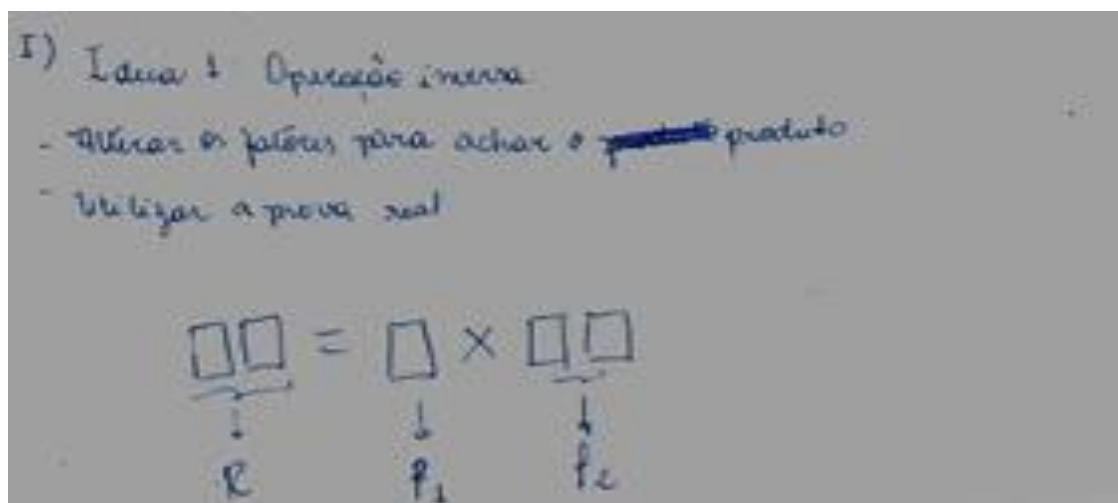 I) Ideia 1 Operação inversa
- Alterar os fatores para achar o produto
- Utilizar a prova real
□□ = □ × □□
↓ ↓ ↓
R P1 P2